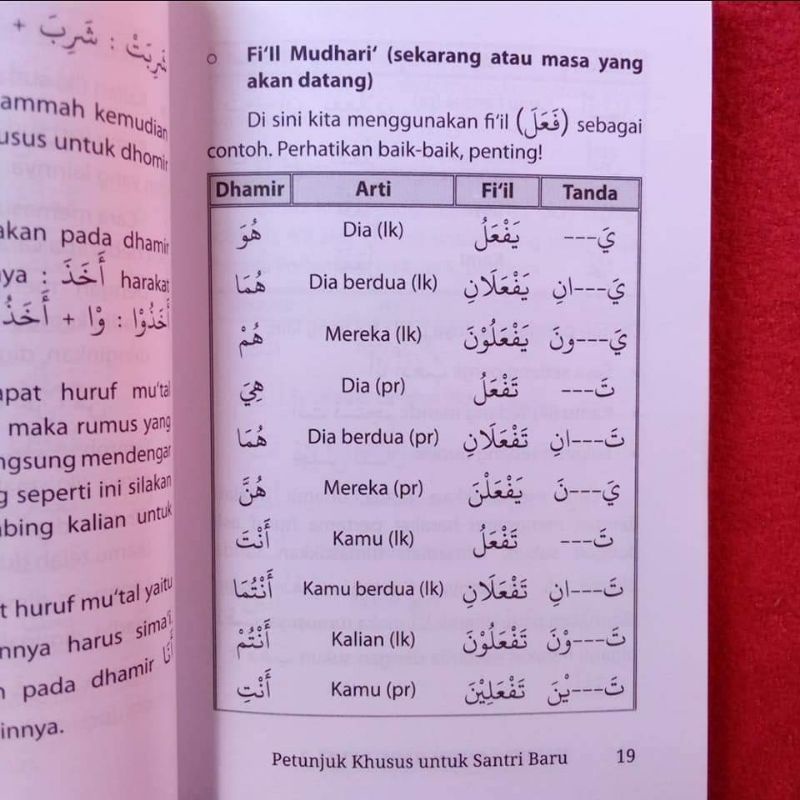 شَرِبَتْ : شَرِبَ +
ammah kemudian
usus untuk dhomir
akan pada dhamir
ya : أَخَذَ harakat
أَخَذُوْا : وْا + أَخَذُ
apat huruf mu'tal
maka rumus yang
ngsung mendengar
g seperti ini silakan
bing kalian untuk
t huruf mu'tal yaitu
nnya harus sima'i,
n pada dhamir أَنَا
innya.
○ Fi'il Mudhari' (sekarang atau masa yang
akan datang)
Di sini kita menggunakan fi'il (فَعَلَ) sebagai
contoh. Perhatikan baik-baik, penting!
Dhamir Arti Fi'il Tanda
هُوَ Dia (lk) يَفْعَلُ يَ---
هُمَا Dia berdua (lk) يَفْعَلَانِ يَ---انِ
هُمْ Mereka (lk) يَفْعَلُوْنَ يَ---ونَ
هِيَ Dia (pr) تَفْعَلُ تَ---
هُمَا Dia berdua (pr) تَفْعَلَانِ تَ---انِ
هُنَّ Mereka (pr) يَفْعَلْنَ يَ---نَ
أَنْتَ Kamu (lk) تَفْعَلُ تَ---
أَنْتُمَا Kamu berdua (lk) تَفْعَلَانِ تَ---انِ
أَنْتُمْ Kalian (lk) تَفْعَلُوْنَ تَ---وْنَ
أَنْتِ Kamu (pr) تَفْعَلِيْنَ تَ---يْنَ
Petunjuk Khusus untuk Santri Baru 19